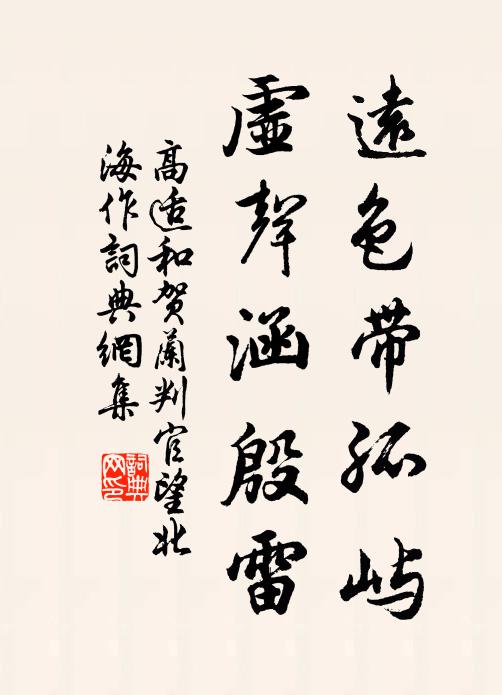 遠色带孤屿
虛聲涵殷雷
高适和贺蘭判官望北
海作詞典網集
詞典
网印